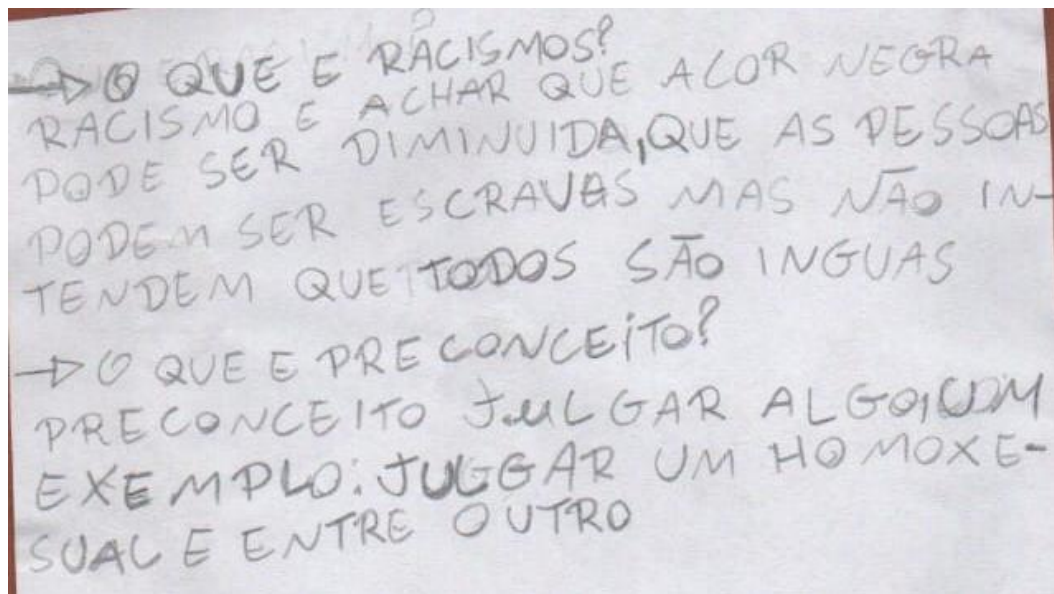 → O QUE E RACISMOS?
RACISMO E ACHAR QUE ACOR NEGRA
PODE SER DIMINUIDA, QUE AS PESSOAS
PODEM SER ESCRAVAS MAS NÃO IN-
TENDEM QUE TODOS SÃO INGUAS
→ O QUE E PRECONCEITO?
PRECONCEITO JULGAR ALGO, UM
EXEMPLO: JULGAR UM HOMOXE-
SUAL E ENTRE OUTRO